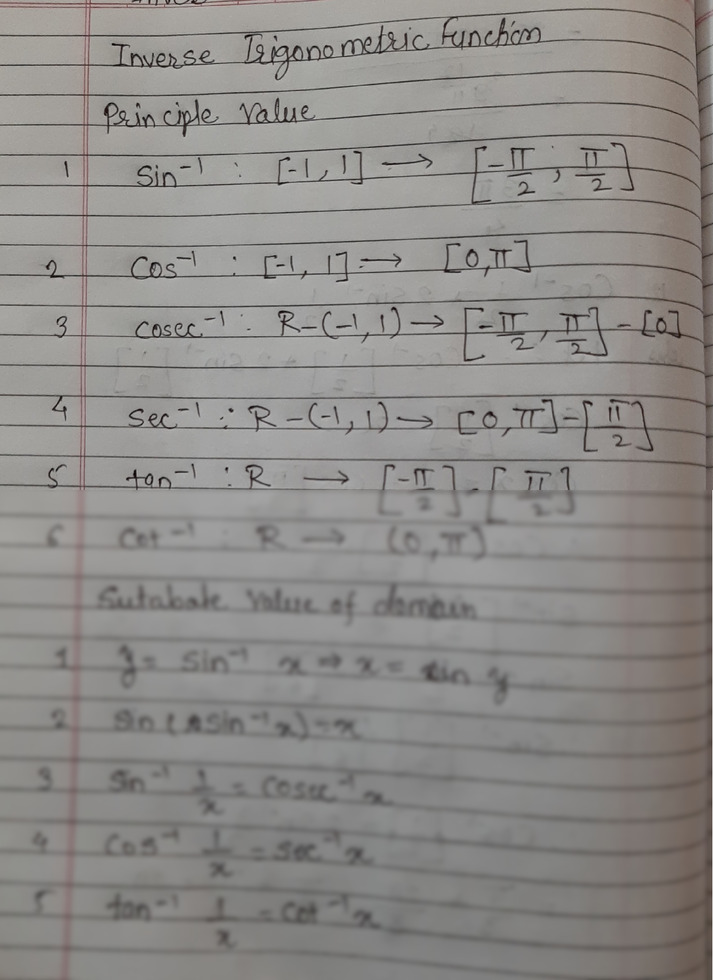 Inverse Trigonometric Function
Principle Value
1 sin⁻¹ : [-1, 1] → [-π/2, π/2]
2 Cos⁻¹ : [-1, 1] → [0, π]
3 cosec⁻¹ : R-(-1, 1) → [-π/2, π/2] - [0]
4 sec⁻¹ : R-(-1, 1) → [0, π] - [π/2]
5 tan⁻¹ : R → [-π/2] - [π/2]
6 cot⁻¹ : R → (0, π)
Value of domain
1 y = sin⁻¹ x ⇒ x = sin y
2 sin (sin⁻¹x) = x
3 sin⁻¹ 1/x = cosec⁻¹ x
4 cos⁻¹ 1/x = sec⁻¹x
5 tan⁻¹ 1/x = cot⁻¹x